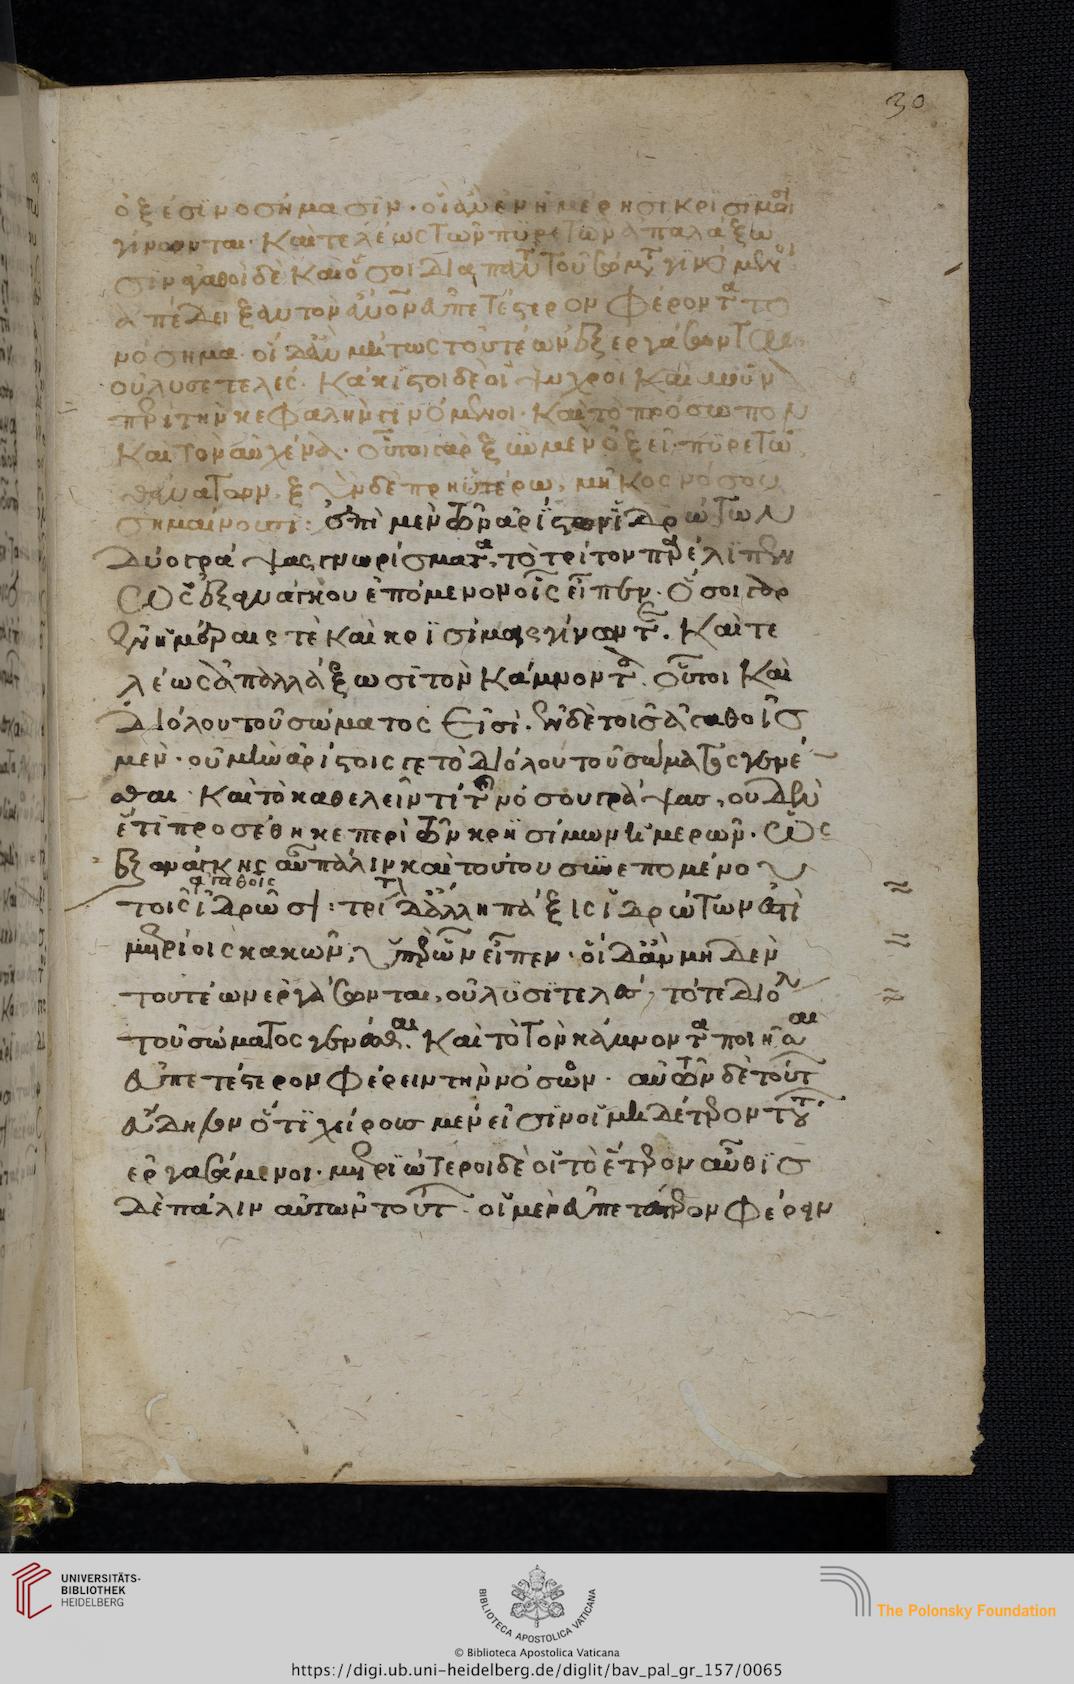 30
ὀξέσι νοσήμασιν· οἳ ἂν ἐν ἡμέρησι κρισίμοισι
γίνονται· καὶ τελέως τῶν πυρετῶν ἀπαλάξω
σιν ἀγαθοὶ δὲ καὶ ὅσοι διὰ παντὸς τοῦ σώματος γινόμενοι
ἀπέδειξαν τὸν ἄνθρωπον εὐπετέστερον φέροντα τὸ
νόσημα· οἳ δ' ἂν μὴ τουτέων ἐξεργάσωνται
οὐ λυσιτελές· κάκιστοι δὲ οἱ ψυχροὶ καὶ μοῦνον
περὶ τὴν κεφαλὴν γινόμενοι· καὶ τὸ πρόσωπον
καὶ τὸν αὐχένα· οὗτοι γὰρ ξὺν μὲν ὀξεῖ πυρετῶ
θάνατον· ξὺν δὲ πρηϋτέρω, μῆκος νόσου
σημαίνουσι: ἐπὶ μὲν τῶν ἀρίστων ἱδρώτων
δύο γράψας γνωρίσματα, τὸ τρίτον παρέλιπεν
ὡς ἐξ ἀνάγκου ἑπόμενον οἷς εἶπεν· ὅσοι γὰρ
ἐν ἡμέραις τὲ καὶ κρισίμαις γίνονται· καὶ τε
λέως ἀπαλλάξωσι τὸν κάμνοντα· οὗτοι καὶ
δι' ὅλου τοῦ σώματος εἰσί· ἐν δὲ τοῖς ἀγαθοῖς
μὲν· οὐ μὴν ἀρίστοις γε τὸ δι' ὅλου τοῦ σώματος γενέ
σθαι· καὶ τὸ καθελεῖν τί τῆς νόσου γράψας, οὐδὲν
ἔτι προσέθηκε περὶ τῶν κρισίμων ἡμερῶν· ὡς
ἐξ ἀνάγκης αὖ πάλιν καὶ τούτου συνεπομένου
ἀγαθοῖς
τοῖς ἱδρῶσι: τρίτη δ' ἄλλη τάξις ἱδρώτων ἐστὶ
μετρίοις κακῶν, ὑπὲρ ὧν εἶπεν· οἳ δ' ἂν μηδὲν
τουτέων ἐργάσωνται, οὐ λυσιτελές· τό τε δι' ὅλου
τοῦ σώματος γενέσθαι· καὶ τὸ τὸν κάμνοντα ποιῆσαι
εὐπετέστερον φέρειν τὴν νόσον· αὐτῶν δὲ τούτων
εὔδηλον ὅτι χείρους μέν εἰσιν οἱ μηδέτερον τούτων
ἐργασάμενοι· μετριώτεροι δὲ οἱ τὸ ἕτερον αὖθις
δὲ πάλιν αὐτῶν τούτων· οἱ μὲν εὐπετέστερον φέρειν
UNIVERSITÄTS-
BIBLIOTHEK
HEIDELBERG
BIBLIOTECA APOSTOLICA VATICANA
The Polonsky Foundation
© Biblioteca Apostolica Vaticana
https://digi.ub.uni-heidelberg.de/diglit/bav_pal_gr_157/0065